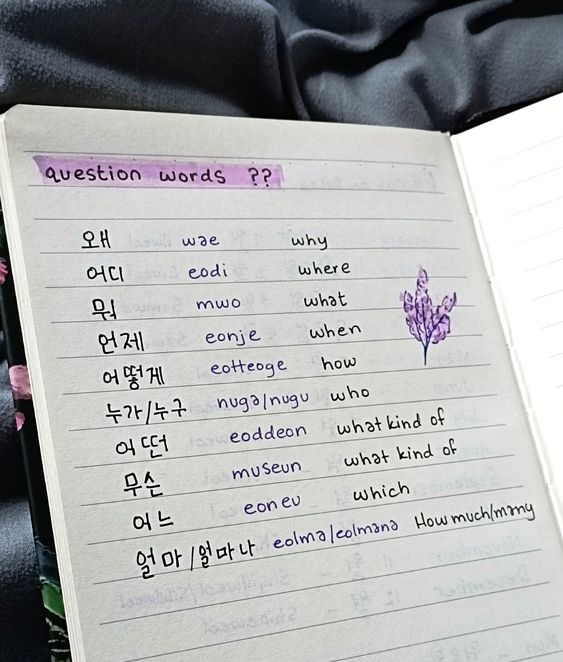 question words ??
왜 wae why
어디 eodi where
뭐 mwo what
언제 eonje when
어떻게 eotteoge how
누가/누구 nuga/nugu who
어떤 eoddeon what kind of
무슨 museun what kind of
어느 eoneu which
얼마/얼마나 eolma/eolmana How much/many